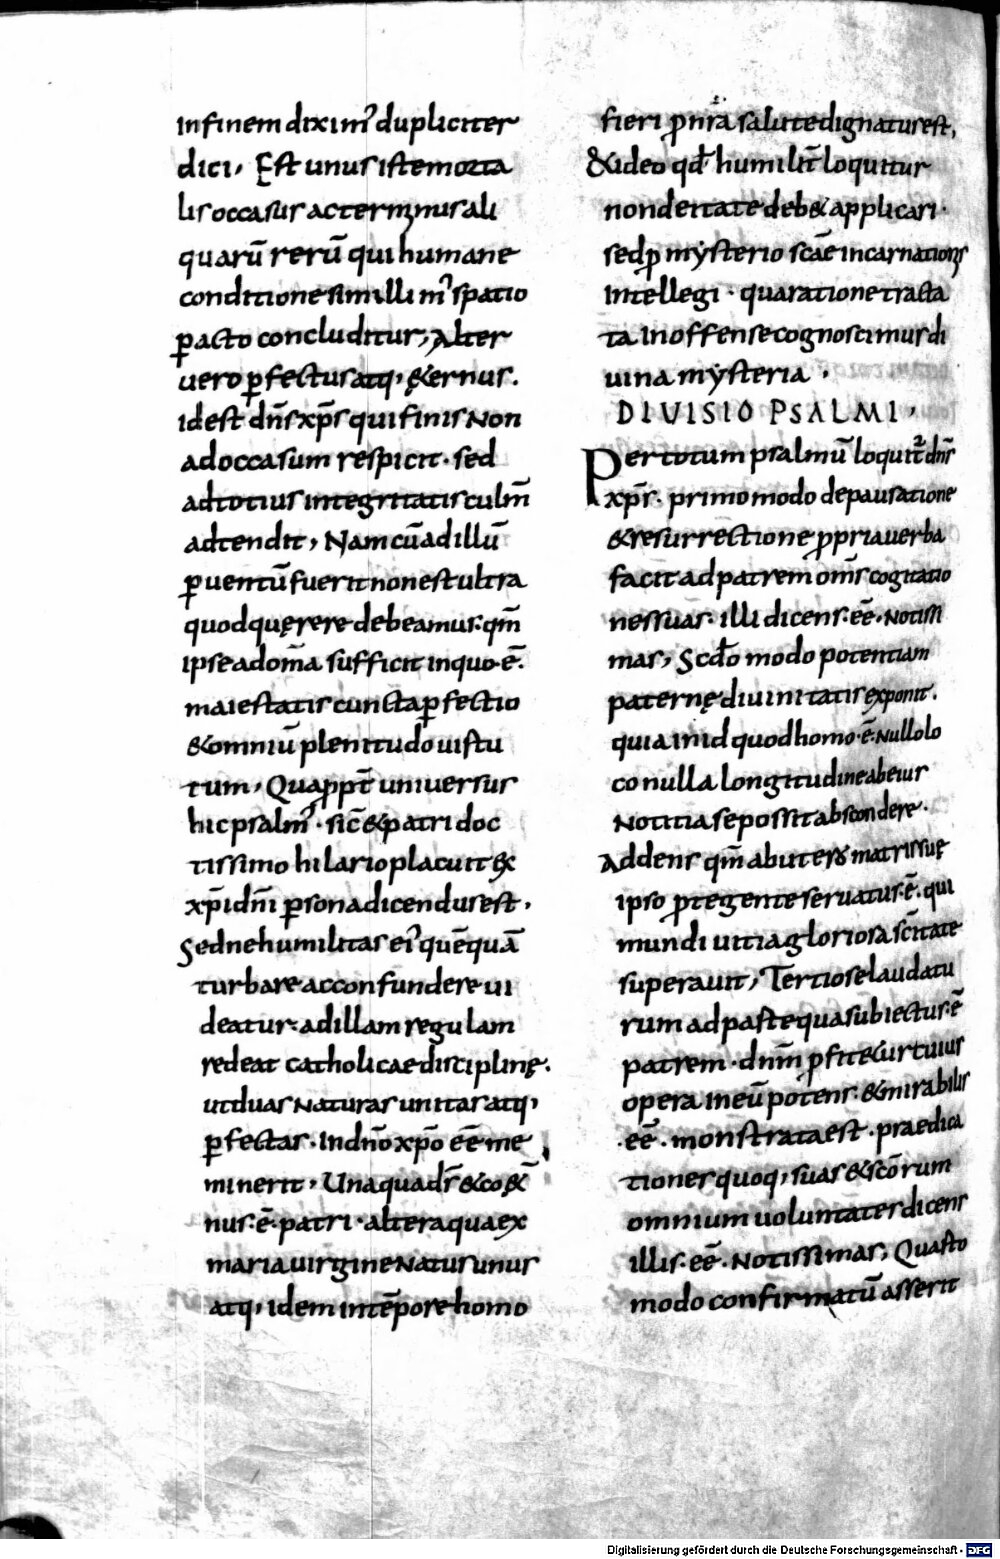 infinem dixim' dupliciter
dici, Est unus iste morta
lis occasus ac terminus ali
quarū rerū qui humane
conditione simillim' spatio
ꝑacto concluditur, Alter
uero ꝑfectus atq, &ernus.
id est dn̄s xp̄s qui finis Non
ad occasum respicit · sed
ad totius integritatis culm̄
adtendit, Nam cū ad illū
ꝑuentū fuerit non est ultra
quod quęrere debeamus · qm̄
ipse ad om̄a sufficit in quo · ē ·
maiestatis cuncta ꝑfectio
& omniū plenitudo uirtu
tum, Quappt̄ uniuersus
hic psalm' · sic̄ & patri doc
tissimo hilario placuit &
xp̄i dn̄i ꝑsona dicendus est,
Sed ne humilitas ei' quēquā
turbare ac confundere ui
deatur · ad illam regulam
redeat catholicae disciplinę ·
ut duas Naturas unitas atq,
ꝑfectas · In dn̄o xp̄o eē me
minerit, Una qua dr̄ & co&
nus · ē · patri · altera qua ex
maria uirgine Natus unus
atq, idem in tēpore homo
fieri ꝓ nr̄a salute dignatus est,
& ideo qd̄ humilit̄ loquitur
non deitate deb& applicari ·
sed ꝓ mysterio scāe incarnationis
Intellegi · qua ratione tracta
ta Inoffense cognoscimus di
uina mysteria ·
DIUISIO PSALMI,
Per totum psalmū loquit̄ dn̄s
xp̄s · primo modo de pausatione
& resurrectione ꝓpria uerba
facit ad patrem om̄s cogitatio
nes suas · illi dicens · eē · Notissi
mas, Scd̄o modo potentiam
paternę diuinitatis exponit ·
quia in id quod homo · ē · Nullo lo
co nulla longitudine ab eius
Notitia se possit abscondere ·
Addens qm̄ ab utero matris suę
ipso ꝓtegente seruatus · ē · qui
mundi uitia gloriosa sc̄itate
superauit, Tertio se laudatu
rum ad paste qua subiectus · ē
patrem · dn̄m ꝓfit& ur cuius
opera in eū potens · & mirabilis
· eē · monstrata est · praedica
tiones quoq, suas & scōrum
omnium uoluntates dicens
illis · eē · Notissimas, Quarto
modo confirmatū asserit
Digitalisierung gefördert durch die Deutsche Forschungsgemeinschaft - DFG